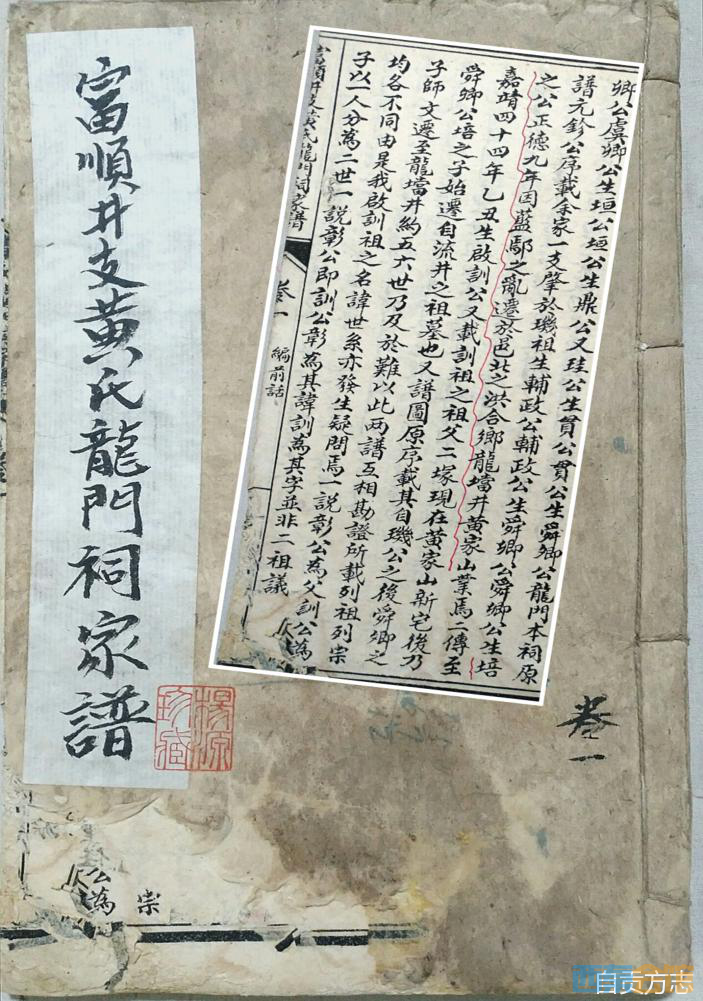 富順井支黄氏龍門祠家譜
卿公虞卿公生垣公垣公生鼎公又珪公生貫公貫公生舜卿公龍門本祠原
譜元鈔公序載余家一支肇於璣祖生輔政公輔政公生舜卿公舜卿公生培
之公正德九年因藍鄢之亂遷於邑北之洪合鄉龍壋井黄家山業焉二傳至
嘉靖四十四年乙丑生啟訓公又載訓祖之祖父二塚現在黄家山新宅後乃
舜卿公培之子始遷自流井之祖墓也又譜圖原序載其自璣公之後舜卿之
子師文遷至龍壋井約五六世乃及於難以此兩譜互相勘證所載列祖列宗
均各不同由是我啟訓祖之名諱世系亦發生疑問焉一說彰公為父訓公為
子以一人分為二世一說彰公即訓公彰為其諱訓為其字並非二祖議
富順井支黄氏龍門祠家譜
卷一
編前話
卷一
楊源
珍藏
公為
宗
自贡方志